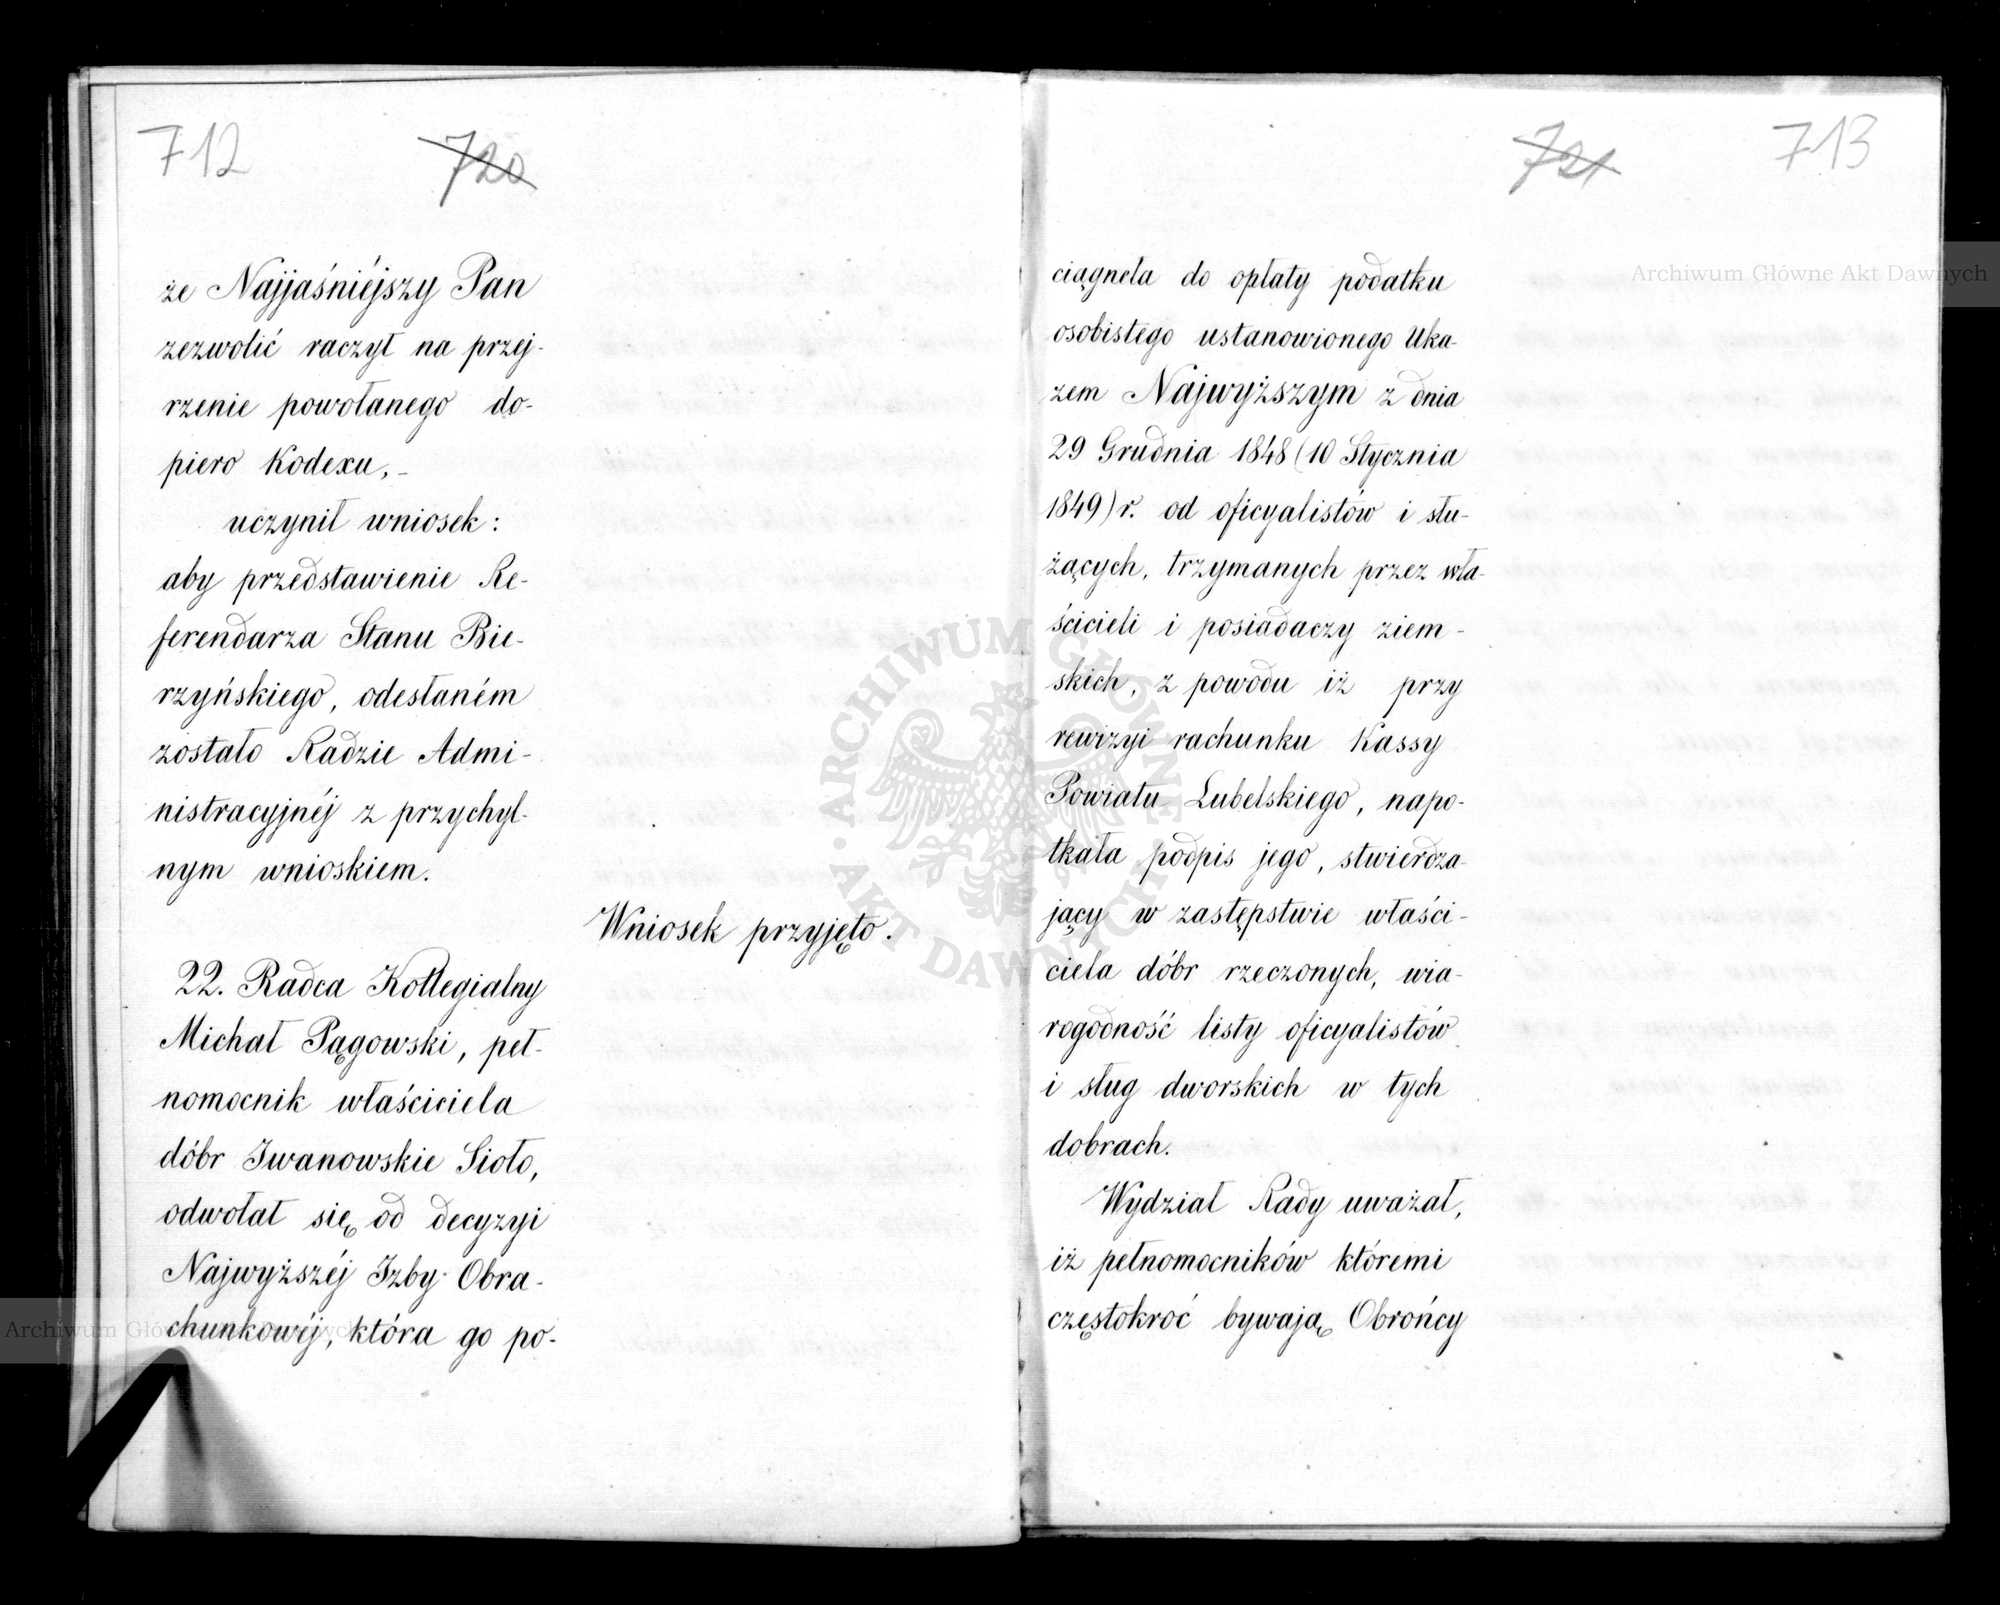 712
720
że Najjaśniéjszy Pan
zezwolić raczył na przej-
rzenie powołanego do-
piero Kodexu,
uczynił wniosek:
aby przedstawienie Re-
ferendarza Stanu Bie-
rzyńskiego, odesłaném
zostało Radzie Admi-
nistracyjnéj z przychyl-
nym wnioskiem.
Wniosek przyjęto.
22. Radca Kollegialny
Michał Pągowski, peł-
nomocnik właściciela
dóbr Iwanowskie Sioło,
odwołał się od decyzyi
Najwyższéj Izby Obra-
chunkowéj, która go po-
721
713
ciągneła do opłaty podatku
osobistego ustanowionego Uka-
zem Najwyższym z dnia
29 Grudnia 1848 (10 Stycznia
1849) r. od oficyalistów i słu-
żących, trzymanych przez wła-
ścicieli i posiadaczy ziem-
skich, z powodu iż przy
rewizyi rachunku Kassy
Powiatu Lubelskiego, napo-
tkała podpis jego, stwierdza-
jący w zastępstwie właści-
ciela dóbr rzeczonych, wia-
rogodność listy oficyalistów
i sług dworskich w tych
dobrach.
Wydział Rady uważał,
iż pełnomocników któremi
częstokroć bywają Obrońcy
Archiwum Główne Akt Dawnych
ARCHIWUM GŁÓWNE AKT DAWNYCH
Archiwum Główne Akt Dawnych